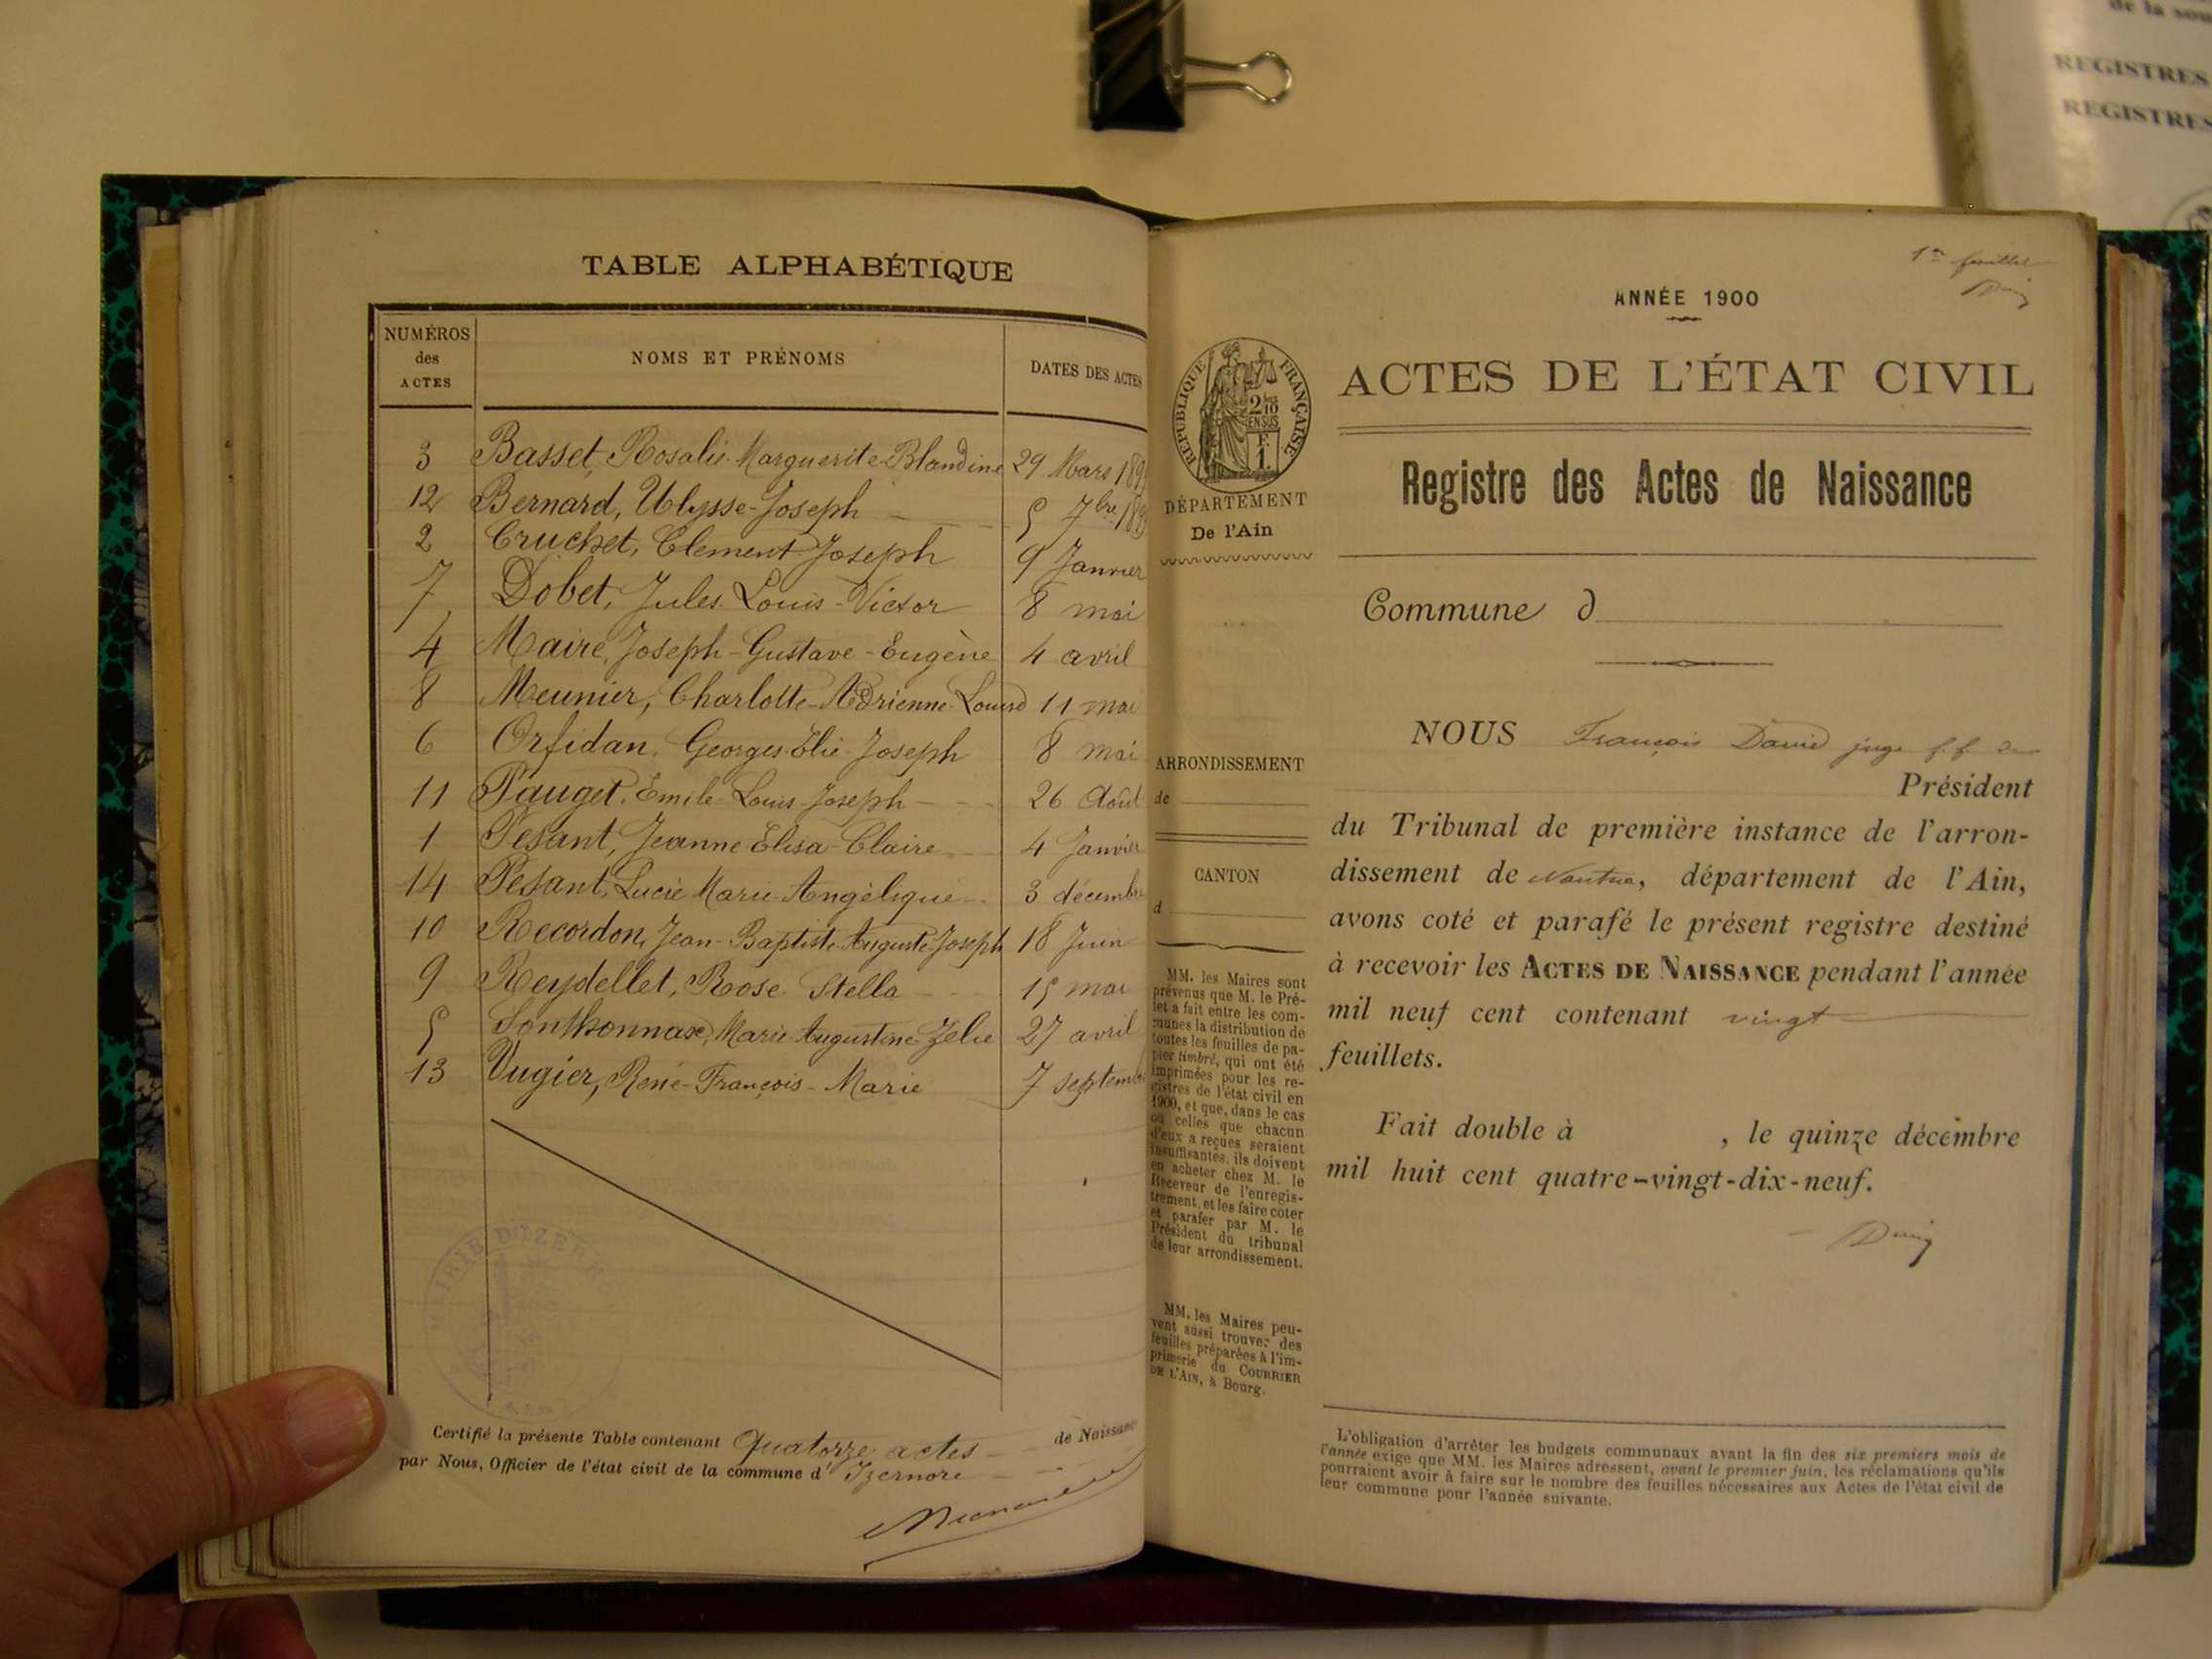 de la
REGISTRES
REGISTRES
TABLE ALPHABÉTIQUE
NUMÉROS des ACTES
NOMS ET PRÉNOMS
DATES DES ACTES
3 Basset, Rosalie-Marguerite-Blandine 29 Mars
12 Bernard, Ulysse-Joseph 5 7bre
2 Cruchet, Clement Joseph 9 Janvier
7 Dobet, Jules Louis-Victor 8 mai
4 Maire, Joseph-Gustave-Eugène 4 avril
8 Meunier, Charlotte-Adrienne-Louise 11 mai
6 Orfidan, Georges-Elie-Joseph 8 mai
11 Pauget, Emile-Louis-Joseph 26 Août
1 Pesant, Jeanne-Elisa-Claire 4 Janvier
14 Pesant, Lucie Marie-Angélique 3 décembre
10 Recordon, Jean-Baptiste Auguste-Joseph 18 Juin
9 Reydellet, Rose Stella 15 mai
5 Sonthonnax, Marie-Augustine-Zelie 27 avril
13 Vugier, René-François-Marie 7 septembre
MAIRIE D'IZERNORE
Certifié la présente Table contenant Quatorze actes de Naissance
par Nous, Officier de l'état civil de la commune d'Izernore
1er feuillet
ANNÉE 1900
RÉPUBLIQUE FRANÇAISE
2/10 EN SUS
F. 1.
ACTES DE L'ÉTAT CIVIL
Registre des Actes de Naissance
DÉPARTEMENT
De l'Ain
Commune d
NOUS François David juge f.f. de
Président
ARRONDISSEMENT
de
du Tribunal de première instance de l'arron-
dissement de Nantua, département de l'Ain,
avons coté et parafé le présent registre destiné
à recevoir les ACTES DE NAISSANCE pendant l'année
mil neuf cent contenant vingt
feuillets.
CANTON
d
MM. les Maires sont
prévenus que M. le Pré-
fet a fait entre les com-
munes la distribution de
toutes les feuilles de pa-
pier timbré, qui ont été
imprimées pour les re-
gistres de l'état civil en
1900, et que, dans le cas
où celles que chacun
d'eux a reçues seraient
insuffisantes, ils doivent
en acheter chez M. le
Receveur de l'enregis-
trement, et les faire coter
et parafer par M. le
Président du tribunal
de leur arrondissement.
Fait double à , le quinze décembre
mil huit cent quatre-vingt-dix-neuf.
MM. les Maires peu-
vent aussi trouver des
feuilles préparées à l'im-
primerie du COURRIER
DE L'AIN, à Bourg.
L'obligation d'arrêter les budgets communaux avant la fin des six premiers mois de
l'année exige que MM. les Maires adressent, avant le premier juin, les réclamations qu'ils
pourraient avoir à faire sur le nombre des feuilles nécessaires aux Actes de l'état civil de
leur commune pour l'année suivante.